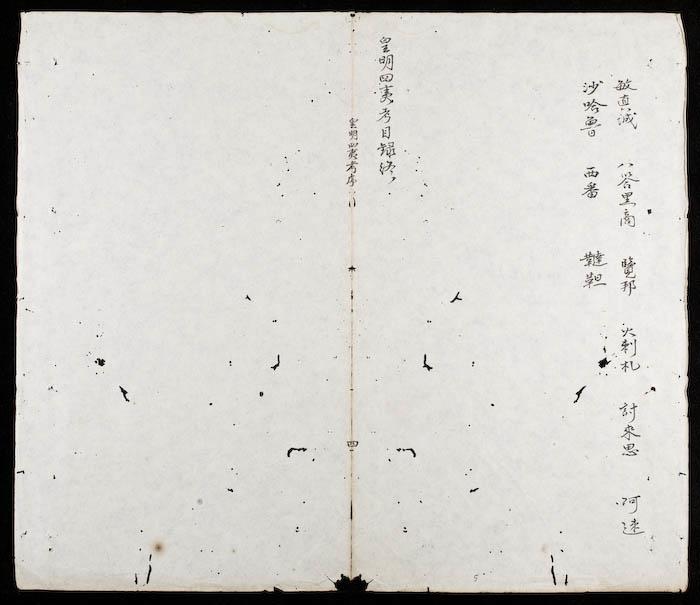 敏真誠 八荅里商 覽邦 火剌札 討來思 阿速
沙哈魯 西番 韃靼
皇明四夷考目録終
皇明四夷考序
四
5